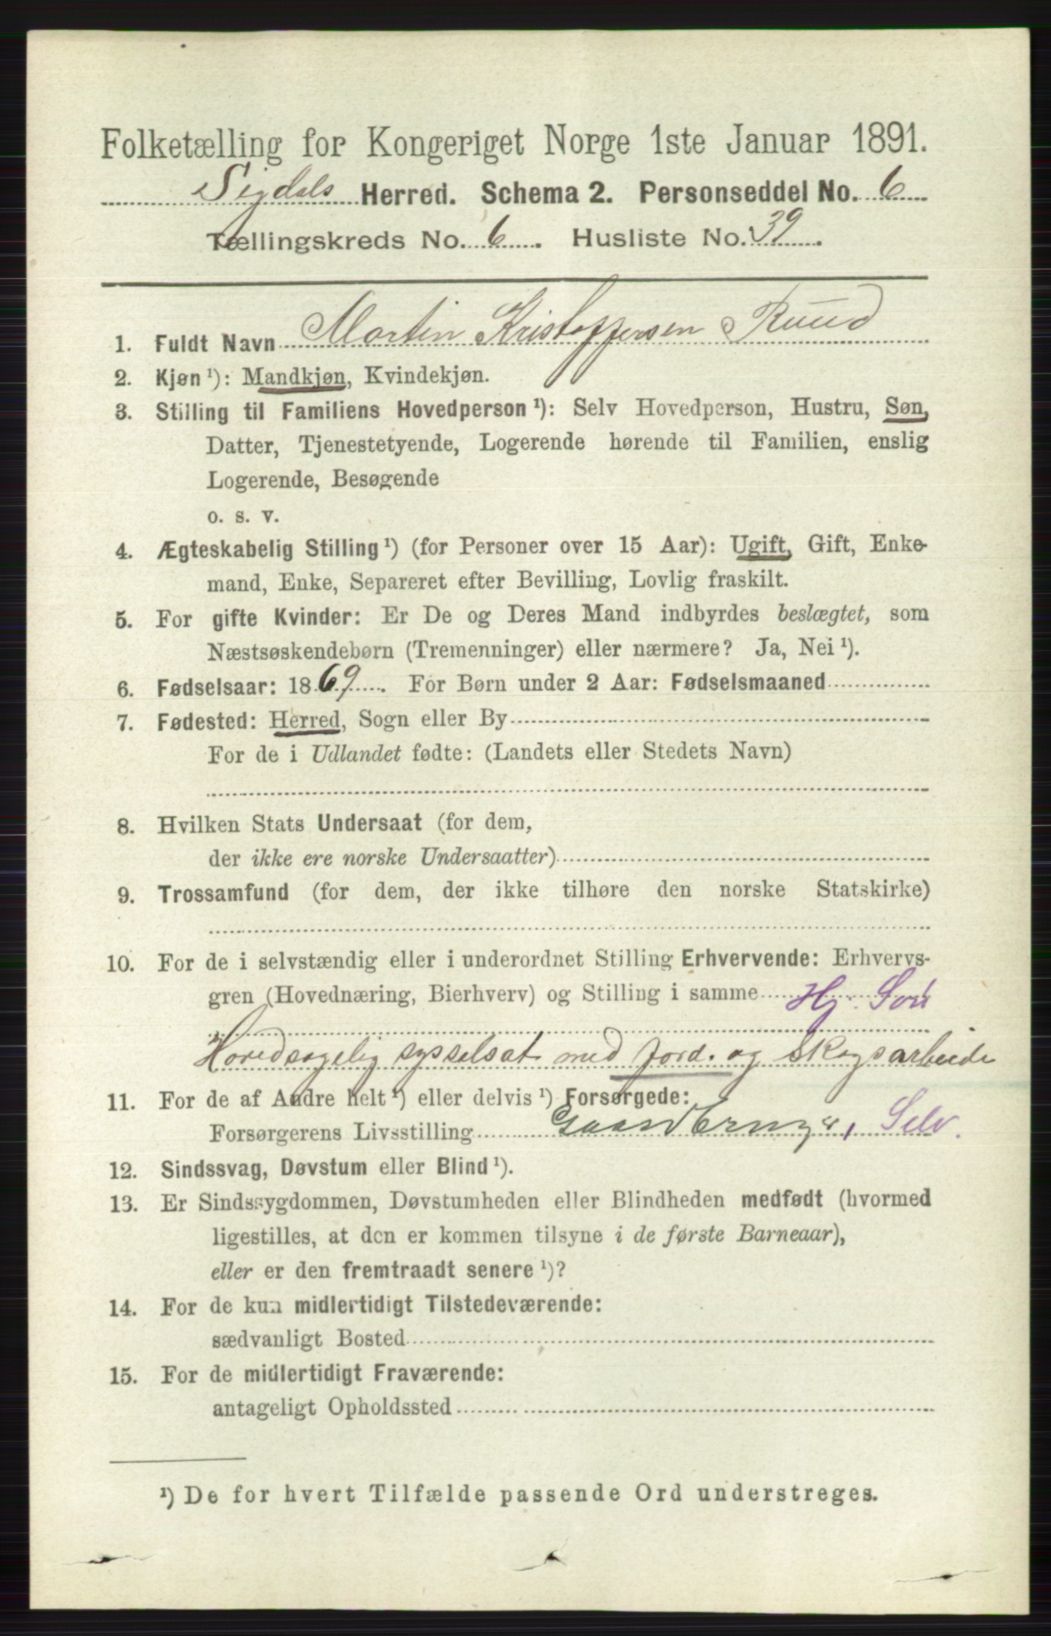 Folketælling for Kongeriget Norge 1ste Januar 1891.
Sigdals Herred. Schema 2. Personseddel No. 6
Tællingskreds No. 6. Husliste No. 39.
1. Fuldt Navn Martin Kristoffersen Ruud
2. Kjøn ¹): Mandkjøn, Kvindekjøn.
3. Stilling til Familiens Hovedperson ¹): Selv Hovedperson, Hustru, Søn,
Datter, Tjenestetyende, Logerende hørende til Familien, enslig
Logerende, Besøgende
o. s. v.
4. Ægteskabelig Stilling ¹) (for Personer over 15 Aar): Ugift, Gift, Enke-
mand, Enke, Separeret efter Bevilling, Lovlig fraskilt.
5. For gifte Kvinder: Er De og Deres Mand indbyrdes beslægtet, som
Næstsøskendebørn (Tremenninger) eller nærmere? Ja, Nei ¹).
6. Fødselsaar: 1869. For Børn under 2 Aar: Fødselsmaaned
7. Fødested: Herred, Sogn eller By
For de i Udlandet fødte: (Landets eller Stedets Navn)
8. Hvilken Stats Undersaat (for dem,
der ikke ere norske Undersaatter)
9. Trossamfund (for dem, der ikke tilhøre den norske Statskirke)
10. For de i selvstændig eller i underordnet Stilling Erhvervende: Erhvervs-
gren (Hovednæring, Bierhverv) og Stilling i samme Hj. Søn
Hovedsagelig sysselsat med Jord. og Skogsarbeide
11. For de af Andre helt ¹) eller delvis ¹) Forsørgede:
Forsørgerens Livsstilling Gaardbruger, Selv.
12. Sindssvag, Døvstum eller Blind ¹).
13. Er Sindssygdommen, Døvstumheden eller Blindheden medfødt (hvormed
ligestilles, at den er kommen tilsyne i de første Barneaar),
eller er den fremtraadt senere ¹)?
14. For de kun midlertidigt Tilstedeværende:
sædvanligt Bosted
15. For de midlertidigt Fraværende:
antageligt Opholdssted
¹) De for hvert Tilfælde passende Ord understreges.